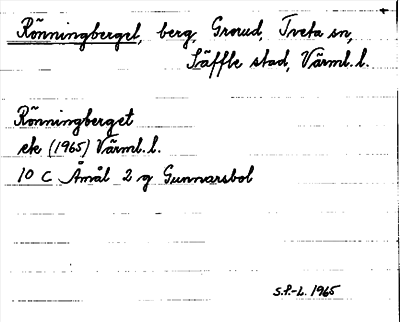 Rönningberget, berg, Grorud, Tveta sn,
Säffle stad, Värml. l.
Rönningberget
ek (1965) Värml. l.
10 C Åmål 2 g Gunnarsbol
S.F.-L. 1965